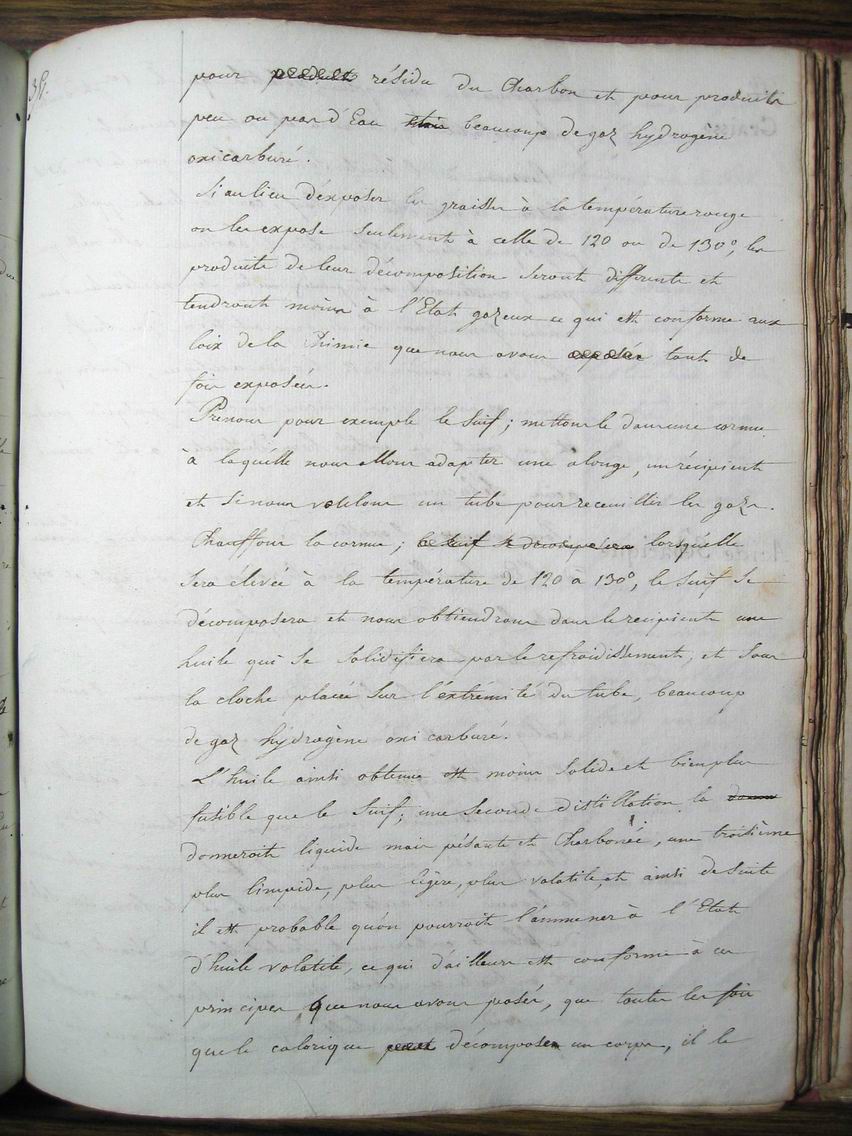 pour produit résidu du Charbon et pour produits
peu ou pas d'Eau beaucoup de gaz hydrogène
oxicarburé.
Si au lieu d'exposer les graisses à la température rouge
on les expose seulement à celle de 120 ou de 130°, les
produits de leur décomposition seront différents et
tendront moins à l'Etat gazeux ce qui est conforme aux
loix de la Chimie que nous avons exposés tant de
fois exposées.
Prenons pour exemple le Suif; mettons le dans une cornue
à laquelle nous allons adapter une alonge, un récipient
et si nous voulons un tube pour receuillir les gaz.
Chauffons la cornue; le suif se décomposera lorsqu'elle
sera élevée à la température de 120 a 130°, le Suif se
décomposera et nous obtiendrons dans le recipient une
huile qui se solidifiera par le refroidissement, et sous
la cloche placée sur l'extrémité du tube, beaucoup
de gaz hydrogène oxi carburé.
L'huile ainsi obtenue est moins solide et bien plus
fusible que le Suif; une seconde distillation la donne
donneroit liquide mais pésante et Charbonée, une troisième
plus limpide, plus légère, plus volatile, et ainsi de suite
il est probable qu'on pourroit l'ammener à l'Etat
d'huile volatile, ce qui d'ailleurs est conforme à ces
principes que nous avons posés, que toutes les fois
que le calorique décompose un corps, il le